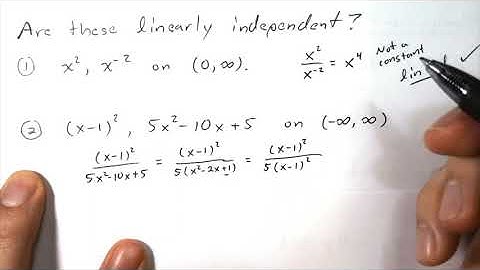 Are these linearly independent?
① x², x⁻² on (0,∞). x²/x⁻² = x⁴ Not a constant
② (x-1)², 5x²-10x+5 on (-∞,∞)
(x-1)²/(5x²-10x+5) = (x-1)²/(5(x²-2x+1)) = (x-1)²/(5(x-1)²)